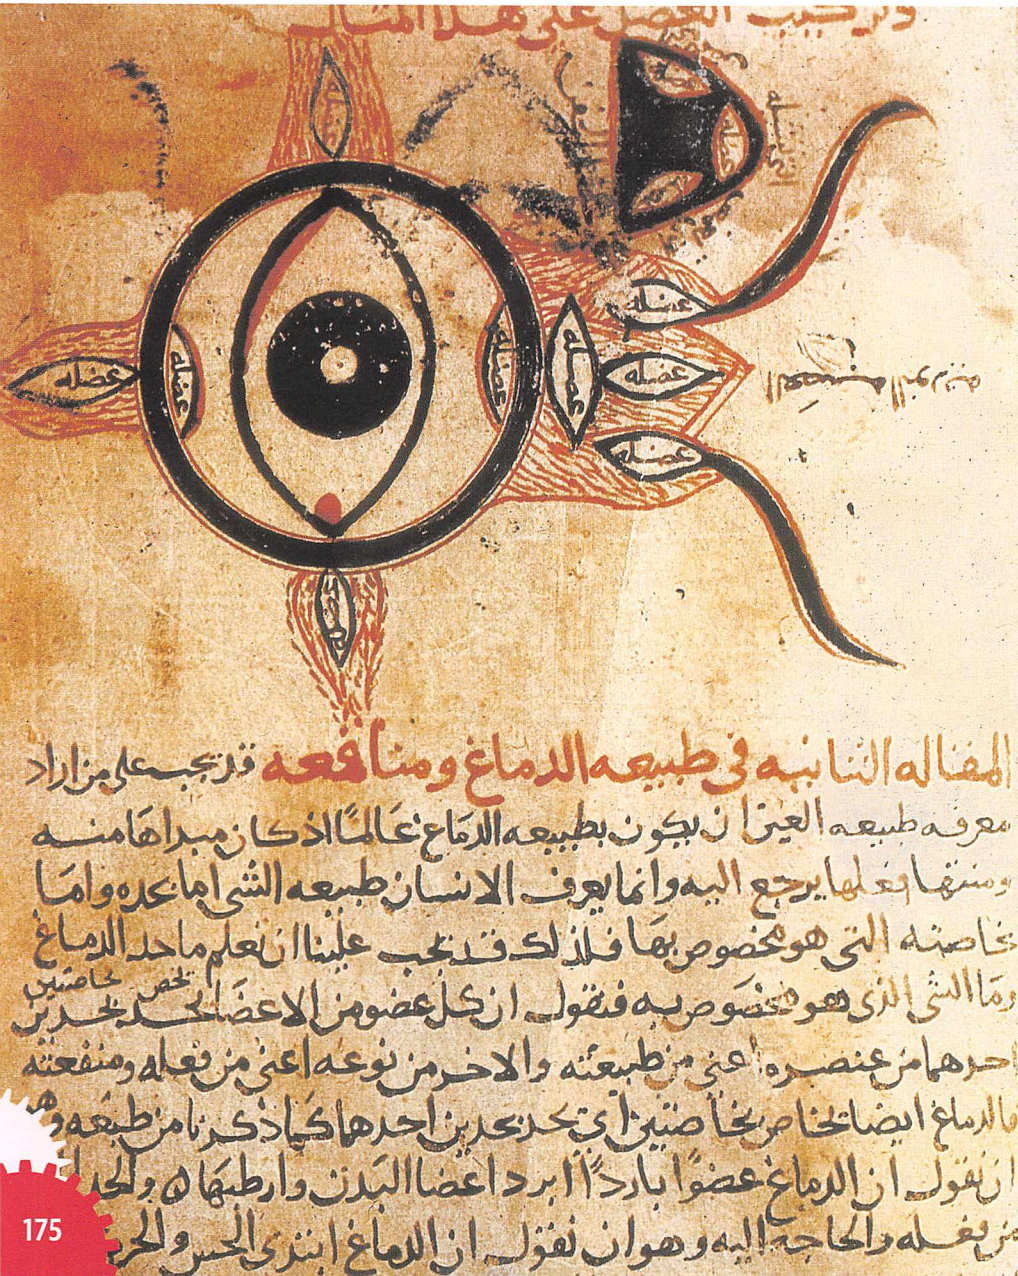 وتركيب العضل على هذا المثال
عضله
عضله
عضله
عضله
عضله
عضله
عضله
عضله
عضله
العصبه النوريه
المقاله الثانيه في طبيعه الدماغ ومنافعه قد يجب على من اراد
معرفه طبيعه العين ان يكون بطبيعه الدماغ عالمًا اذ كان مبداها منه
ومنتها فعلها يرجع اليه وانما يعرف الانسان طبيعه الشي اما بحده واما
بخاصته التي هو مخصوص بها فلذلك قد يجب علينا ان نعلم ما حد الدماغ
وما الشي الذي هو مخصوص به فنقول ان كل عضو من الاعضا يحد بحدين
يخص بخاصتين
احدهما من عنصره اعني من طبيعته والاخر من نوعه اعني من فعله ومنفعته
فالدماغ ايضا بخاصتين اي يحد بحدين احدهما كما ذكرنا من طبعه وهو
ان نقول ان الدماغ عضوًا باردًا ابرد اعضا البدن وارطبها والحد
من فعله والحاجة اليه وهو ان نقول ان الدماغ ابتدى الحس والحر
175